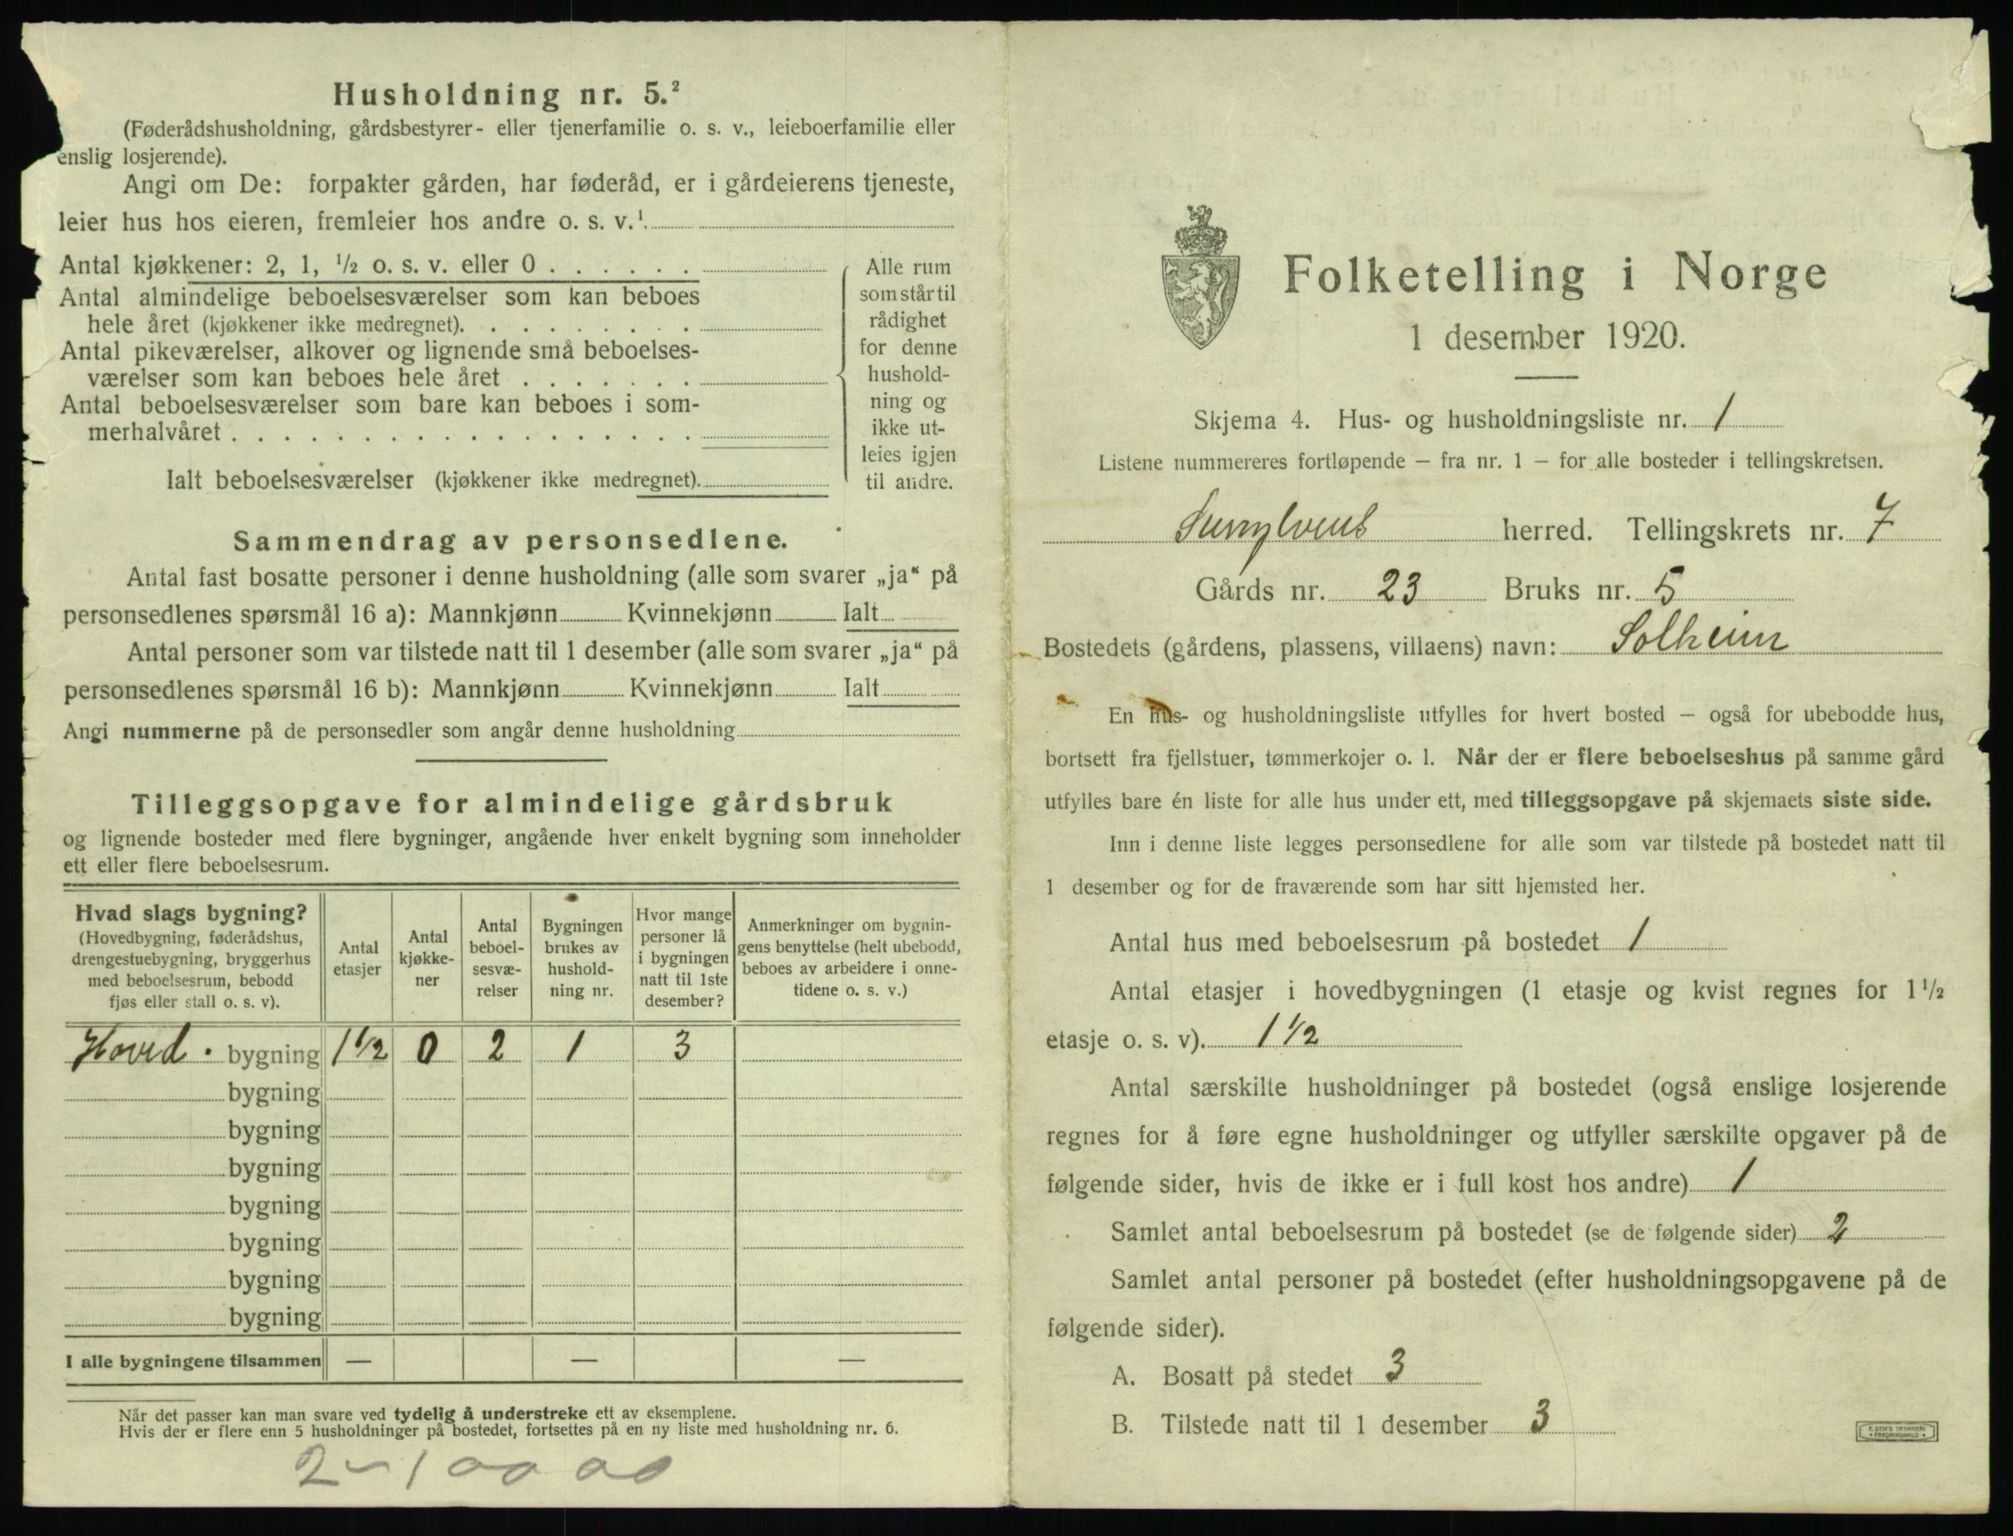 Husholdning nr. 5.²
(Føderådshusholdning, gårdsbestyrer- eller tjenerfamilie o. s. v., leieboerfamilie eller
enslig losjerende).
Angi om De: forpakter gården, har føderåd, er i gårdeierens tjeneste,
leier hus hos eieren, fremleier hos andre o. s. v.¹.
Antal kjøkkener: 2, 1, ½ o. s. v. eller 0 . . . . . .
Antal almindelige beboelsesværelser som kan beboes
hele året (kjøkkener ikke medregnet). . . . . . . . .
Antal pikeværelser, alkover og lignende små beboelses-
værelser som kan beboes hele året . . . . . . .
Antal beboelsesværelser som bare kan beboes i som-
merhalvåret . . . . . . . . . . . . . . . . . .
Ialt beboelsesværelser (kjøkkener ikke medregnet).
Alle rum
som står til
rådighet
for denne
hushold-
ning og
ikke ut-
leies igjen
til andre.
Sammendrag av personsedlene.
Antal fast bosatte personer i denne husholdning (alle som svarer „ja“ på
personsedlenes spørsmål 16 a): Mannkjønn Kvinnekjønn Ialt
Antal personer som var tilstede natt til 1 desember (alle som svarer „ja“ på
personsedlenes spørsmål 16 b): Mannkjønn Kvinnekjønn Ialt
Angi nummerne på de personsedler som angår denne husholdning
Tilleggsopgave for almindelige gårdsbruk
og lignende bosteder med flere bygninger, angående hver enkelt bygning som inneholder
ett eller flere beboelsesrum.
Hvad slags bygning?
(Hovedbygning, føderådshus,
drengestuebygning, bryggerhus
med beboelsesrum, bebodd
fjøs eller stall o. s. v).
Antal
etasjer
Antal
kjøkke-
ner
Antal
beboel-
sesvæ-
relser
Bygningen
brukes av
hushold-
ning nr.
Hvor mange
personer lå
i bygningen
natt til 1ste
desember?
Anmerkninger om bygnin-
gens benyttelse (helt ubebodd,
beboes av arbeidere i onne-
tidene o. s. v.)
Hoved . bygning 1 ½ 0 2 1 3
bygning
bygning
bygning
bygning
bygning
bygning
bygning
I alle bygningene tilsammen — — —
Når det passer kan man svare ved tydelig å understreke ett av eksemplene.
Hvis der er flere enn 5 husholdninger på bostedet, fortsettes på en ny liste med husholdning nr. 6.
2 - 1 00 00
Folketelling i Norge
1 desember 1920.
Skjema 4. Hus- og husholdningsliste nr. 1
Listene nummereres fortløpende — fra nr. 1 — for alle bosteder i tellingskretsen.
Sunnylvens herred. Tellingskrets nr. 7
Gårds nr. 23 Bruks nr. 5
Bostedets (gårdens, plassens, villaens) navn: Solheim
En hus- og husholdningsliste utfylles for hvert bosted — også for ubebodde hus,
bortsett fra fjellstuer, tømmerkojer o. l. Når der er flere beboelseshus på samme gård
utfylles bare én liste for alle hus under ett, med tilleggsopgave på skjemaets siste side.
Inn i denne liste legges personsedlene for alle som var tilstede på bostedet natt til
1 desember og for de fraværende som har sitt hjemsted her.
Antal hus med beboelsesrum på bostedet 1
Antal etasjer i hovedbygningen (1 etasje og kvist regnes for 1½
etasje o. s. v). 1 ½
Antal særskilte husholdninger på bostedet (også enslige losjerende
regnes for å føre egne husholdninger og utfyller særskilte opgaver på de
følgende sider, hvis de ikke er i full kost hos andre) 1
Samlet antal beboelsesrum på bostedet (se de følgende sider) 2
Samlet antal personer på bostedet (efter husholdningsopgavene på de
følgende sider).
A. Bosatt på stedet 3
B. Tilstede natt til 1 desember 3